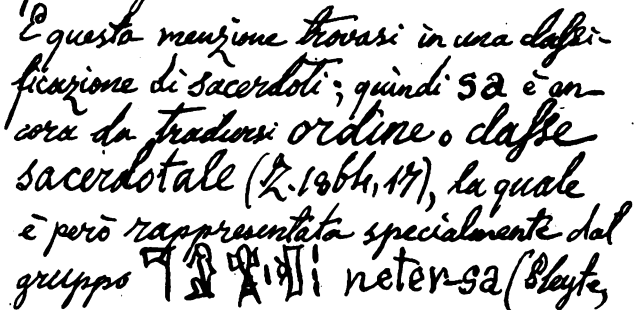 E questa menzione trovasi in una classi-
ficazione di sacerdoti; quindi sa è an-
cora da tradursi ordine, o classe
sacerdotale (Z. 1864, 17), la quale
è però rappresentata specialmente dal
gruppo neter-sa (Pleyte,